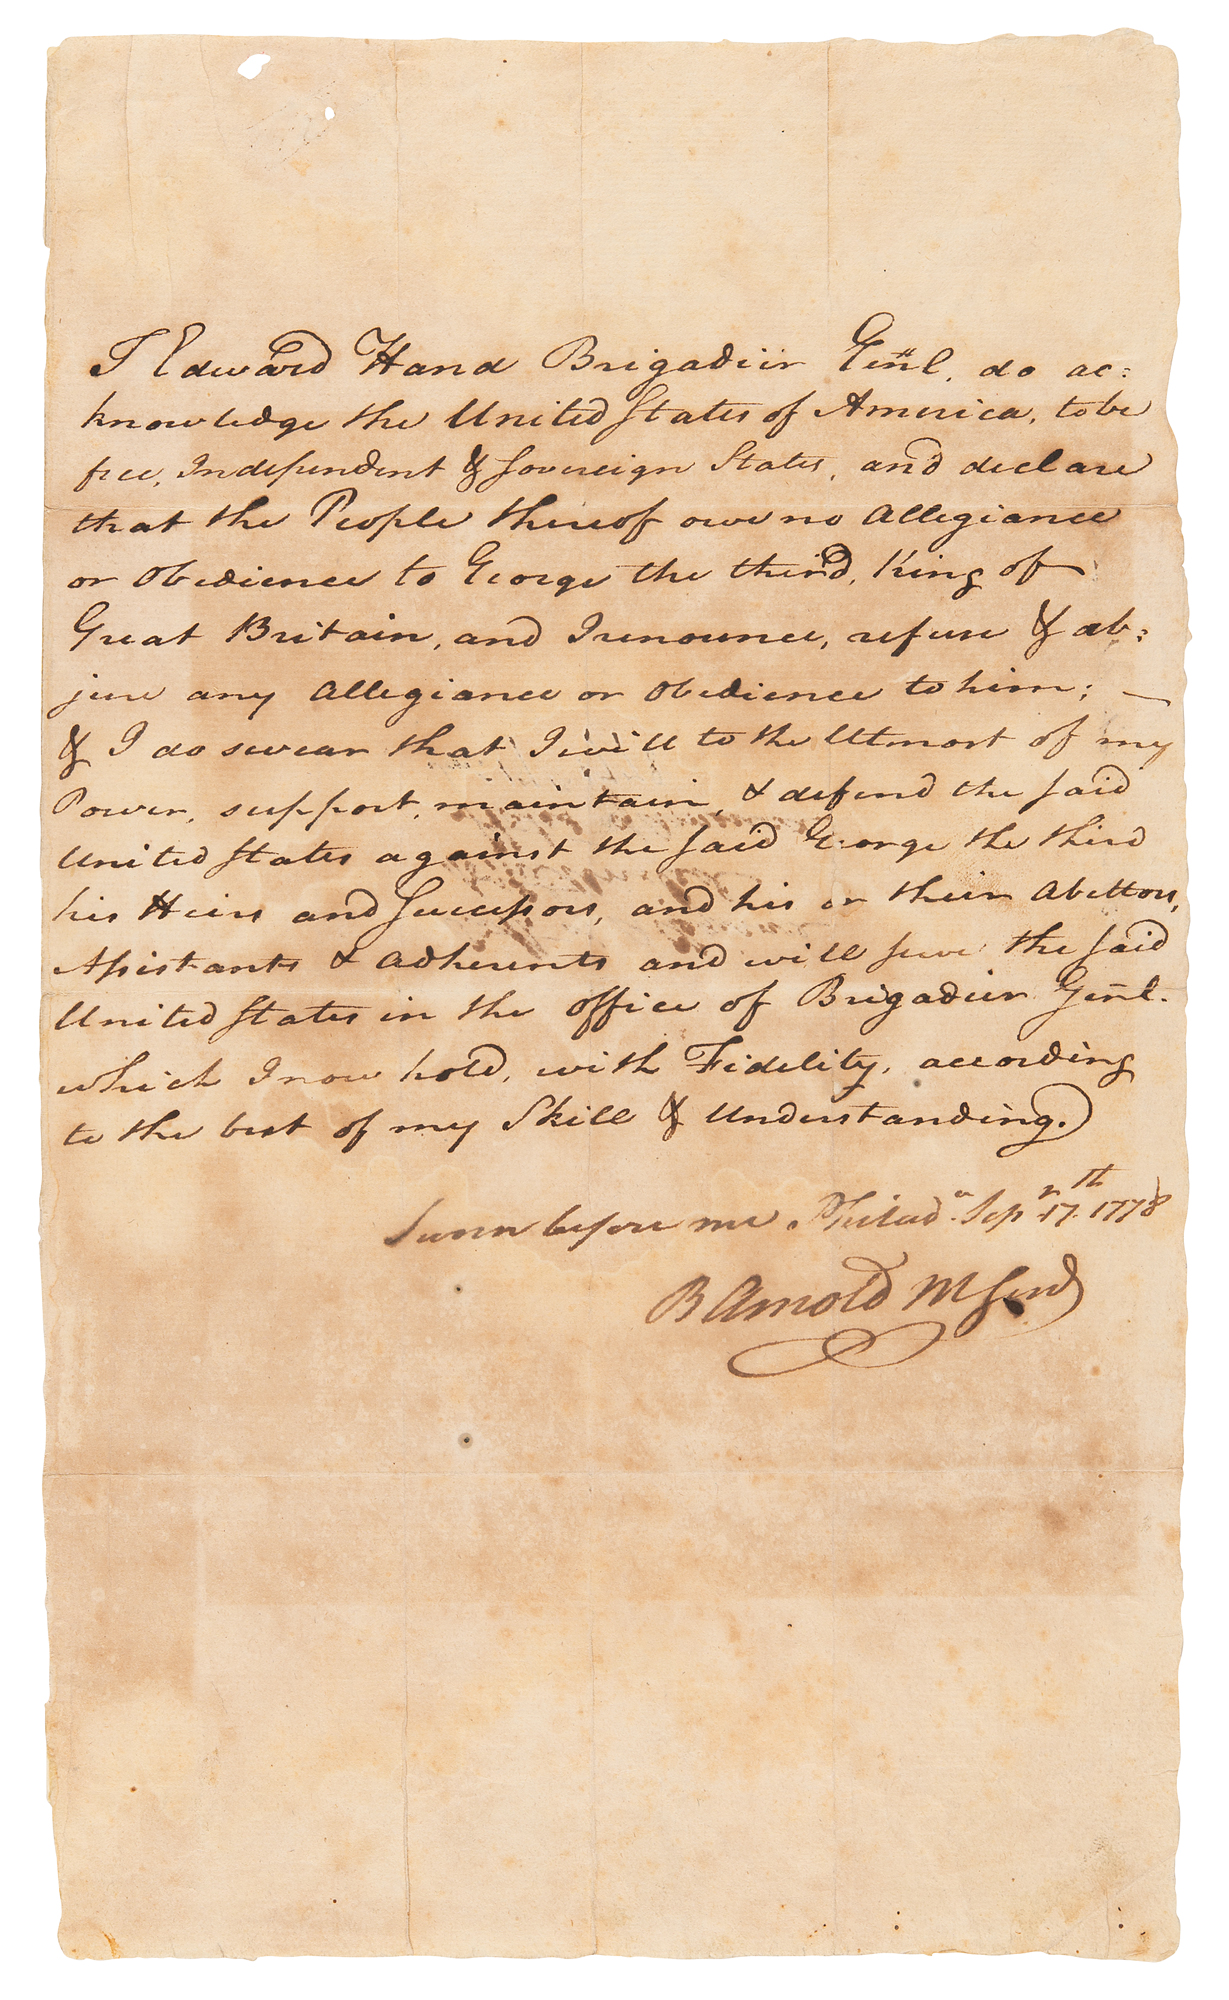 I Edward Hand Brigadier Genl. do ac=
knowledge the United States of America, to be
free, Independent & Sovereign States, and declare
that the People thereof owe no Allegiance
or Obedience to George the third, King of
Great Britain, and I renounce, refuse & ab=
jure any Allegiance or Obedience to him; —
& I do swear that I will to the Utmost of my
Power, support, maintain, & defend the said
United States against the said George the third
his Heirs and Successors, and his or their Abettors,
Assistants & Adherents and will serve the said
United States in the office of Brigadier Genl.
which I now hold, with Fidelity, according
to the best of my Skill & Understanding.
Sworn before me Philada. Sepr. 17th 1778
B Arnold M Genl